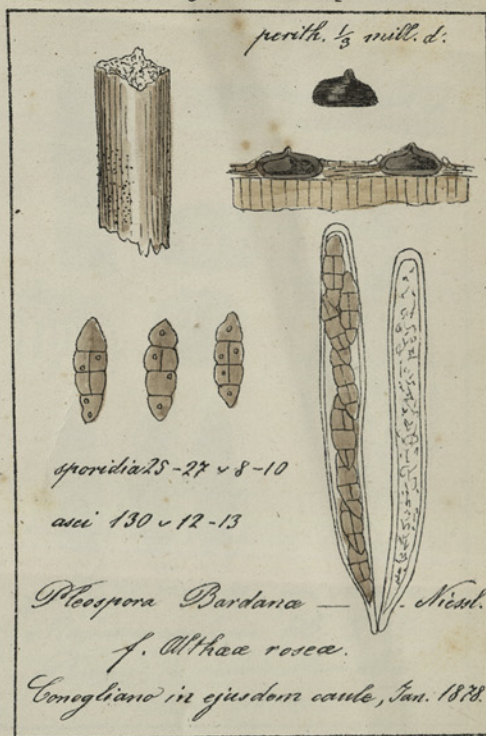 perith. ⅓ mill. d:
sporidia 25-27 v 8-10
asci 130 v 12-13
Pleospora Bardanæ — . Niessl.
f. Althææ roseæ.
Conegliano in ejusdem caule, Jan. 1878.